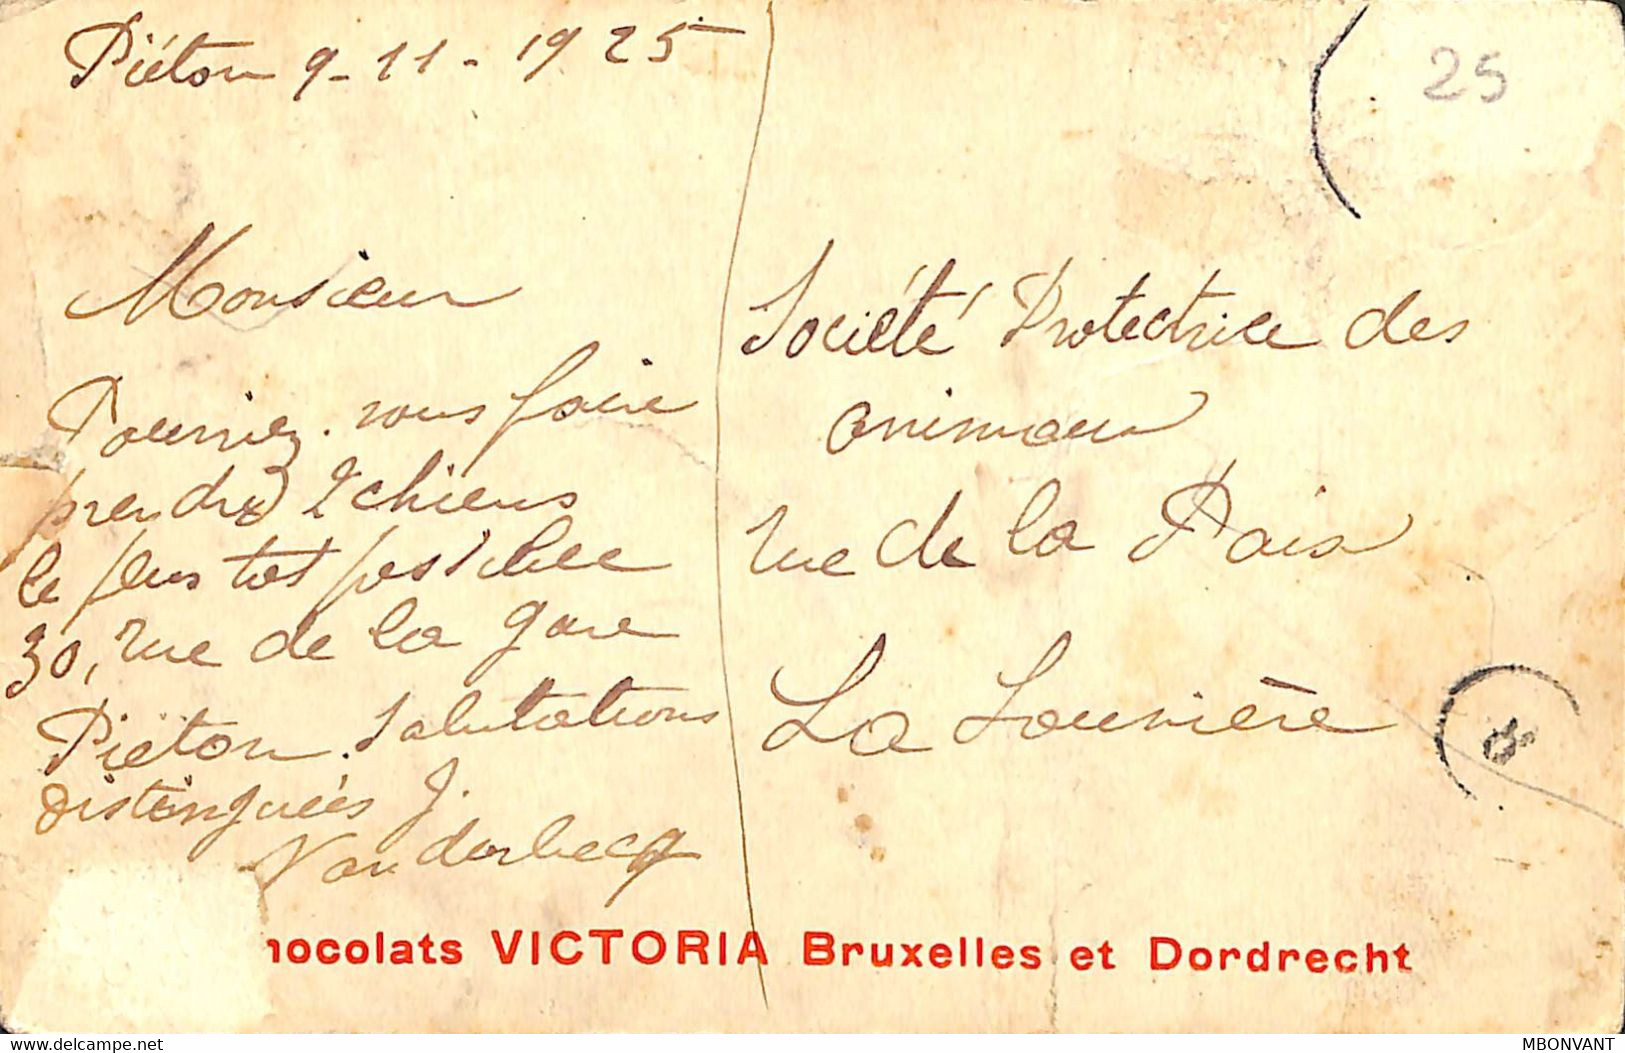 Piéton 9-11-1925
25
Monsieur
Pourriez-vous faire
prendre 2 chiens
le plus tot possible
30, rue de la gare
Piéton. Salutations
distinguées J.
Vanderbecq
Société Protectrice des
animaux
rue de la Paix
La Louvière
hocolats VICTORIA Bruxelles et Dordrecht
delcampe.net
MBONVANT